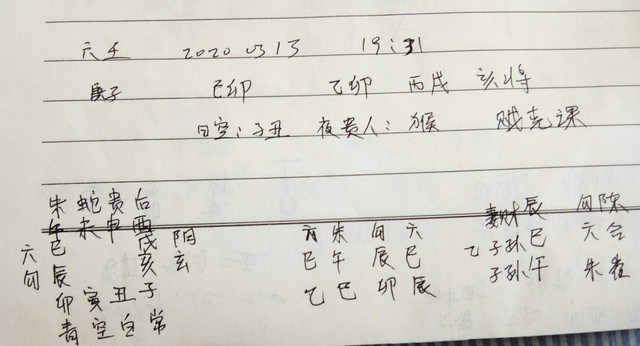 六壬 2020 03 13 19:31
庚子 己卯 乙卯 丙戌 亥将
日空:子丑 夜贵人:猴 贼克课
朱 蛇 贵 后
午 未 申 酉
六 巳 戌 阴
勾 辰 亥 玄
卯 寅 丑 子
青 空 白 常
六 朱 勾 六
巳 午 辰 巳
乙 巳 卯 辰
妻财 辰 勾陈
乙 子孙 巳 六合
子孙 午 朱雀